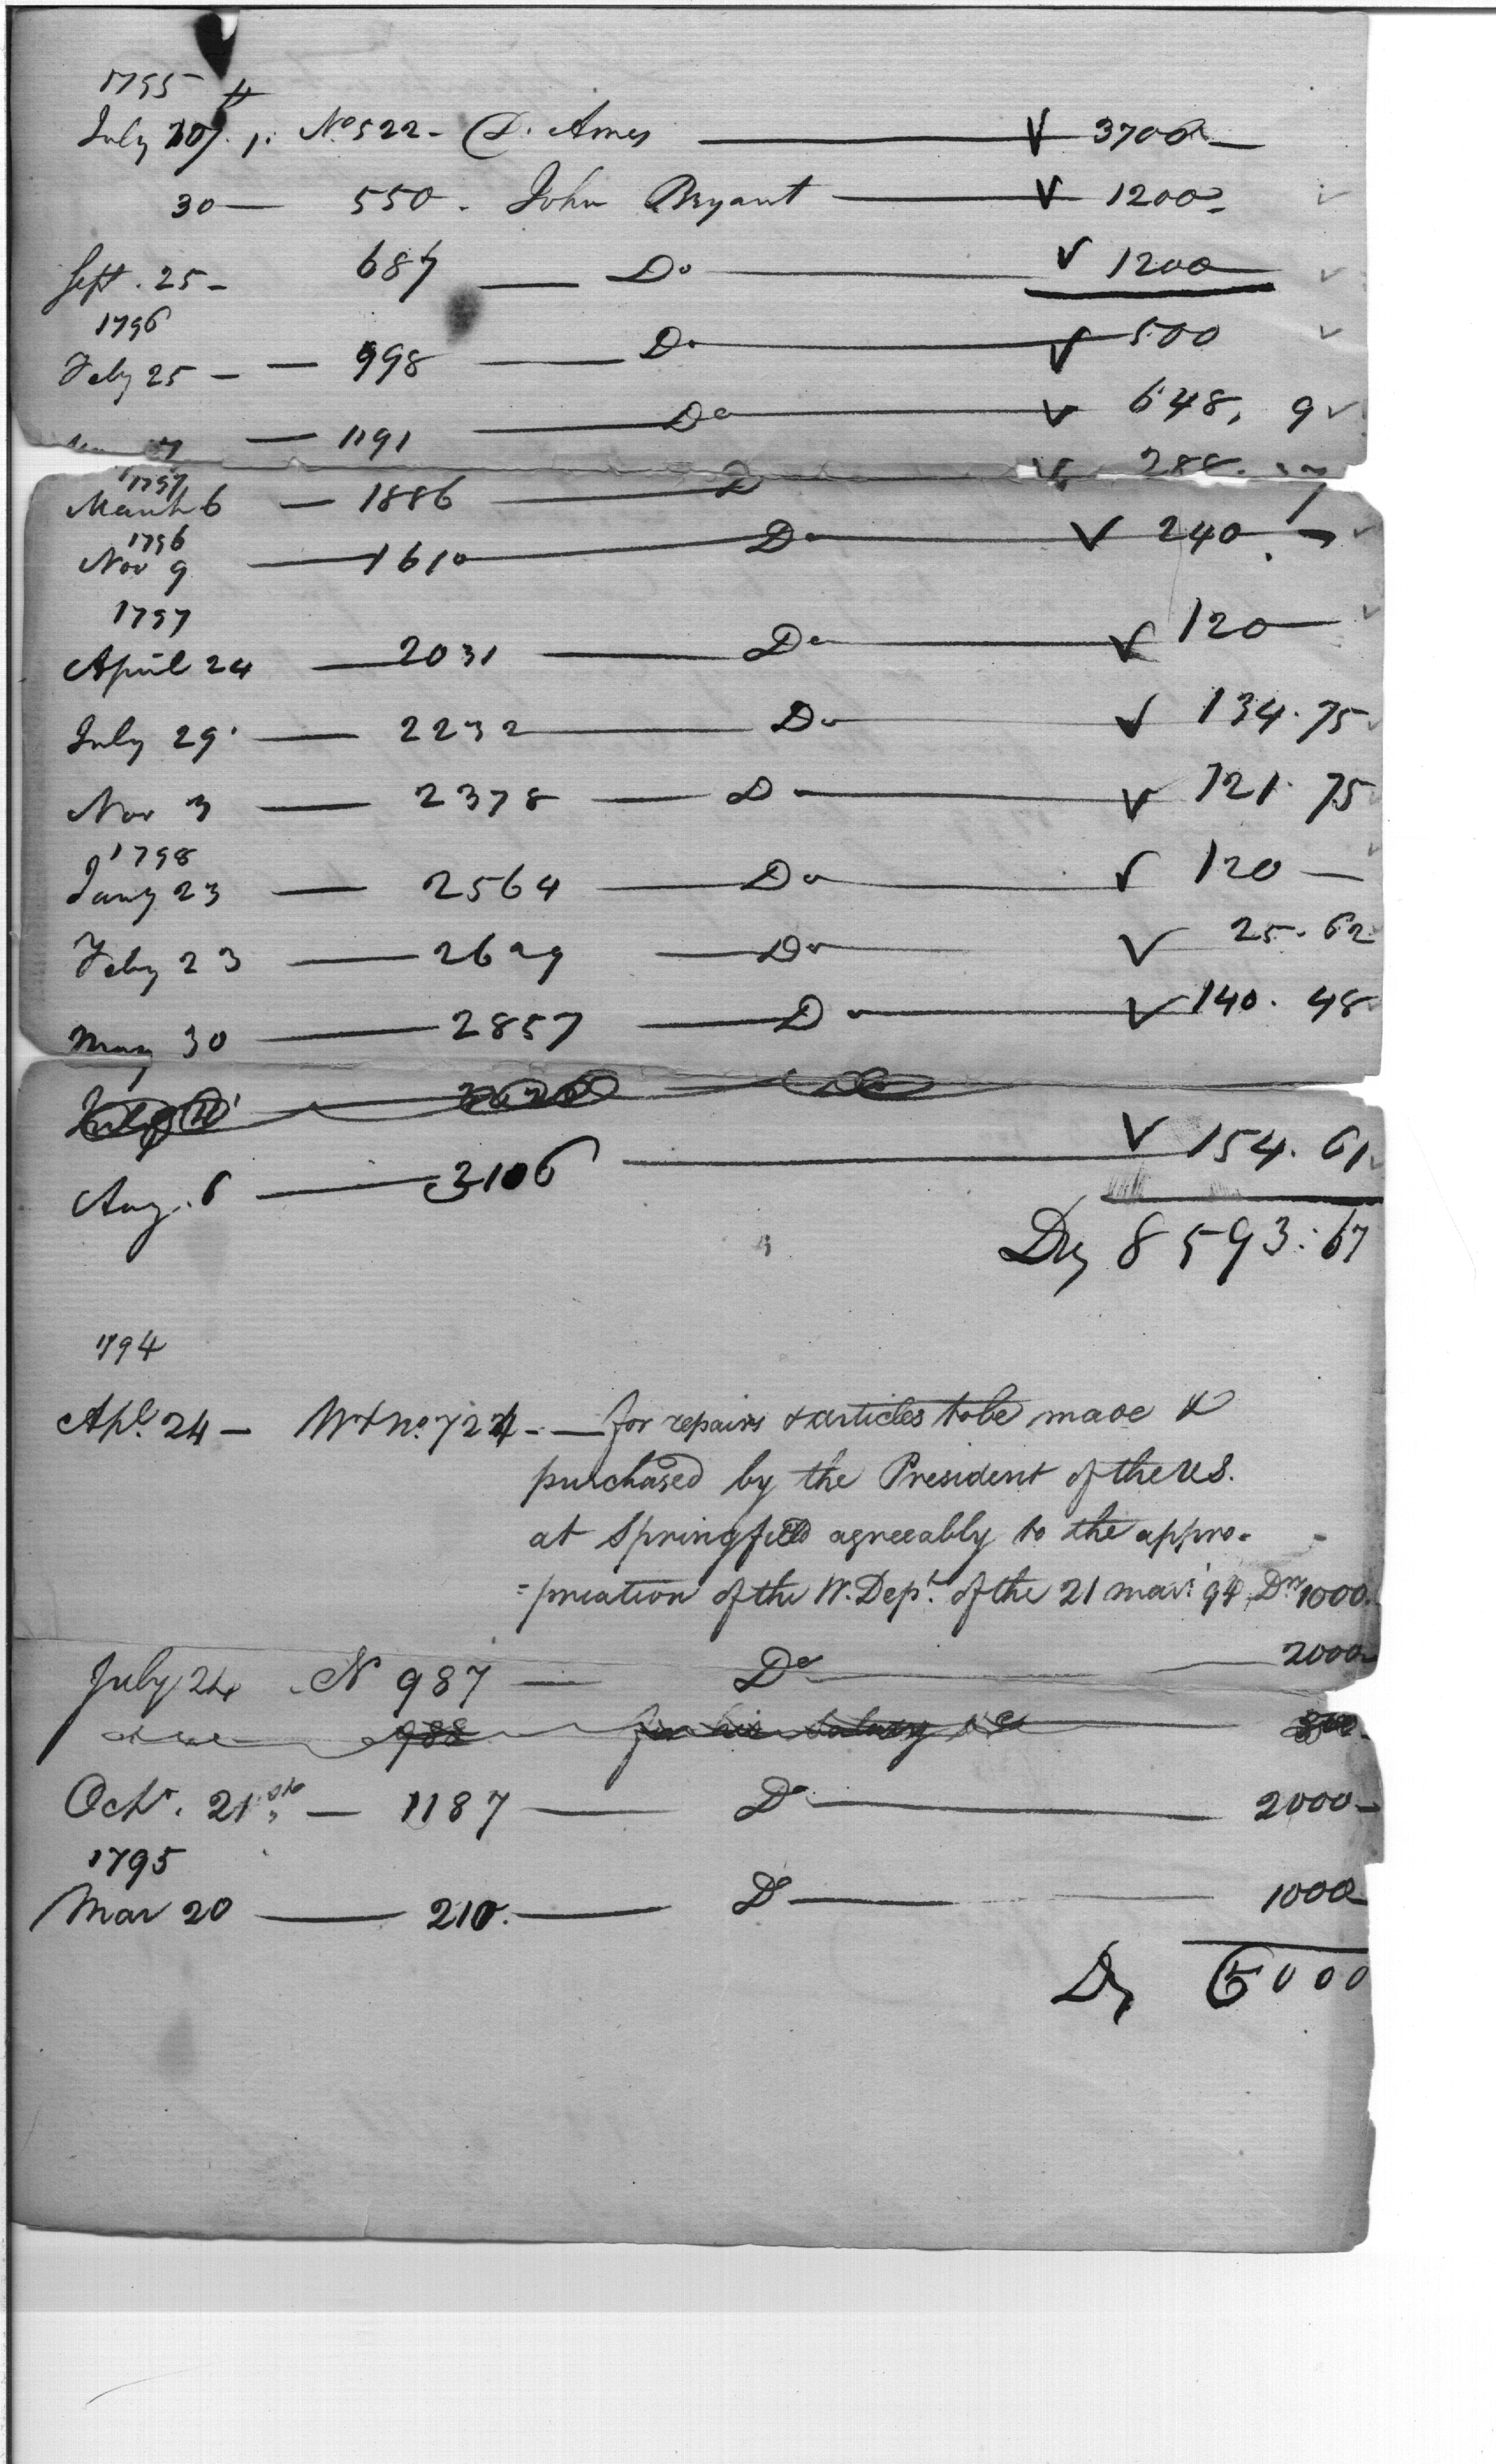 1795
July 10. N° 522 - D. Ames 3700
30 — 550. John Bryant — 1200
Sept. 25 - 687 — Do — 1200
1796
Feby 25 — 998 — Do — 500
— 1191 — Do — 648, 9
1797
March 6 — 1886 — D — 288.
1796
Nov 9 — 1610 — Do — 240
1797
April 24 — 2031 — Do — 120 —
July 29 — 2232 — Do — 134.75
Nov 3 — 2378 — Do — 121.75
1798
Jany 23 — 2564 — Do — 120 —
Feby 23 — 2629 — Do — 25.62
May 30 — 2857 — Do — 140.48
Aug. 6 — 3106 — 154.61
Drs 8593:67
1794
Apl. 24 — Wt no. 724 - — for repairs & articles to be made &
purchased by the President of the U.S.
at Springfield agreeably to the appro-
=priation of the W. Dept. of the 21 mar: 94, Drs 1000.
July 24 . N 987 — Do — 2000
988 for his Salary &c
Octr. 21st — 1187 — Do — 2000 —
1795
Mar 20 — 210. — Do — 1000
Ds 6000